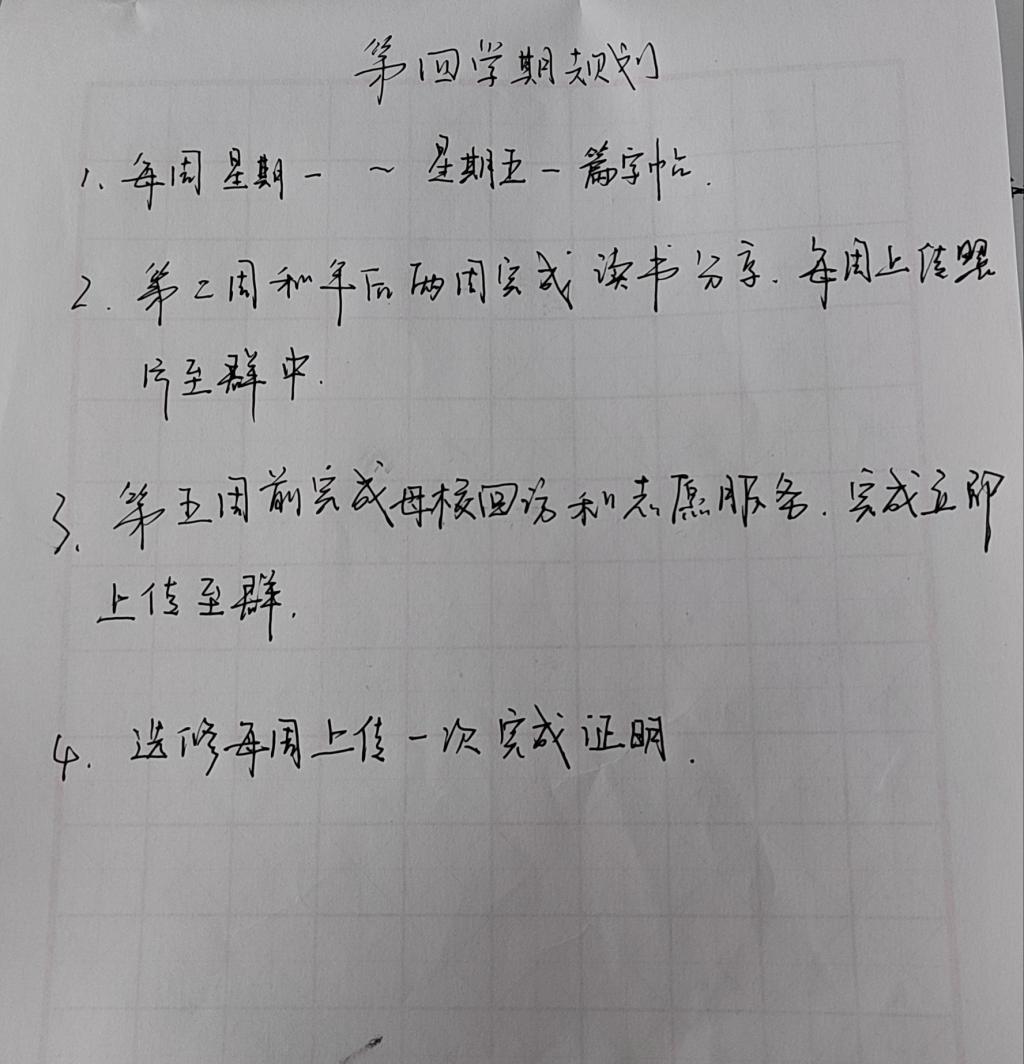 第四学期规划
1. 每周星期一 ~ 星期五一篇字帖.
2. 第二周和年后两周完成读书分享. 每周上传照
片至群中.
3. 第五周前完成母校回访和志愿服务. 完成立即
上传至群.
4. 选修每周上传一次完成证明.